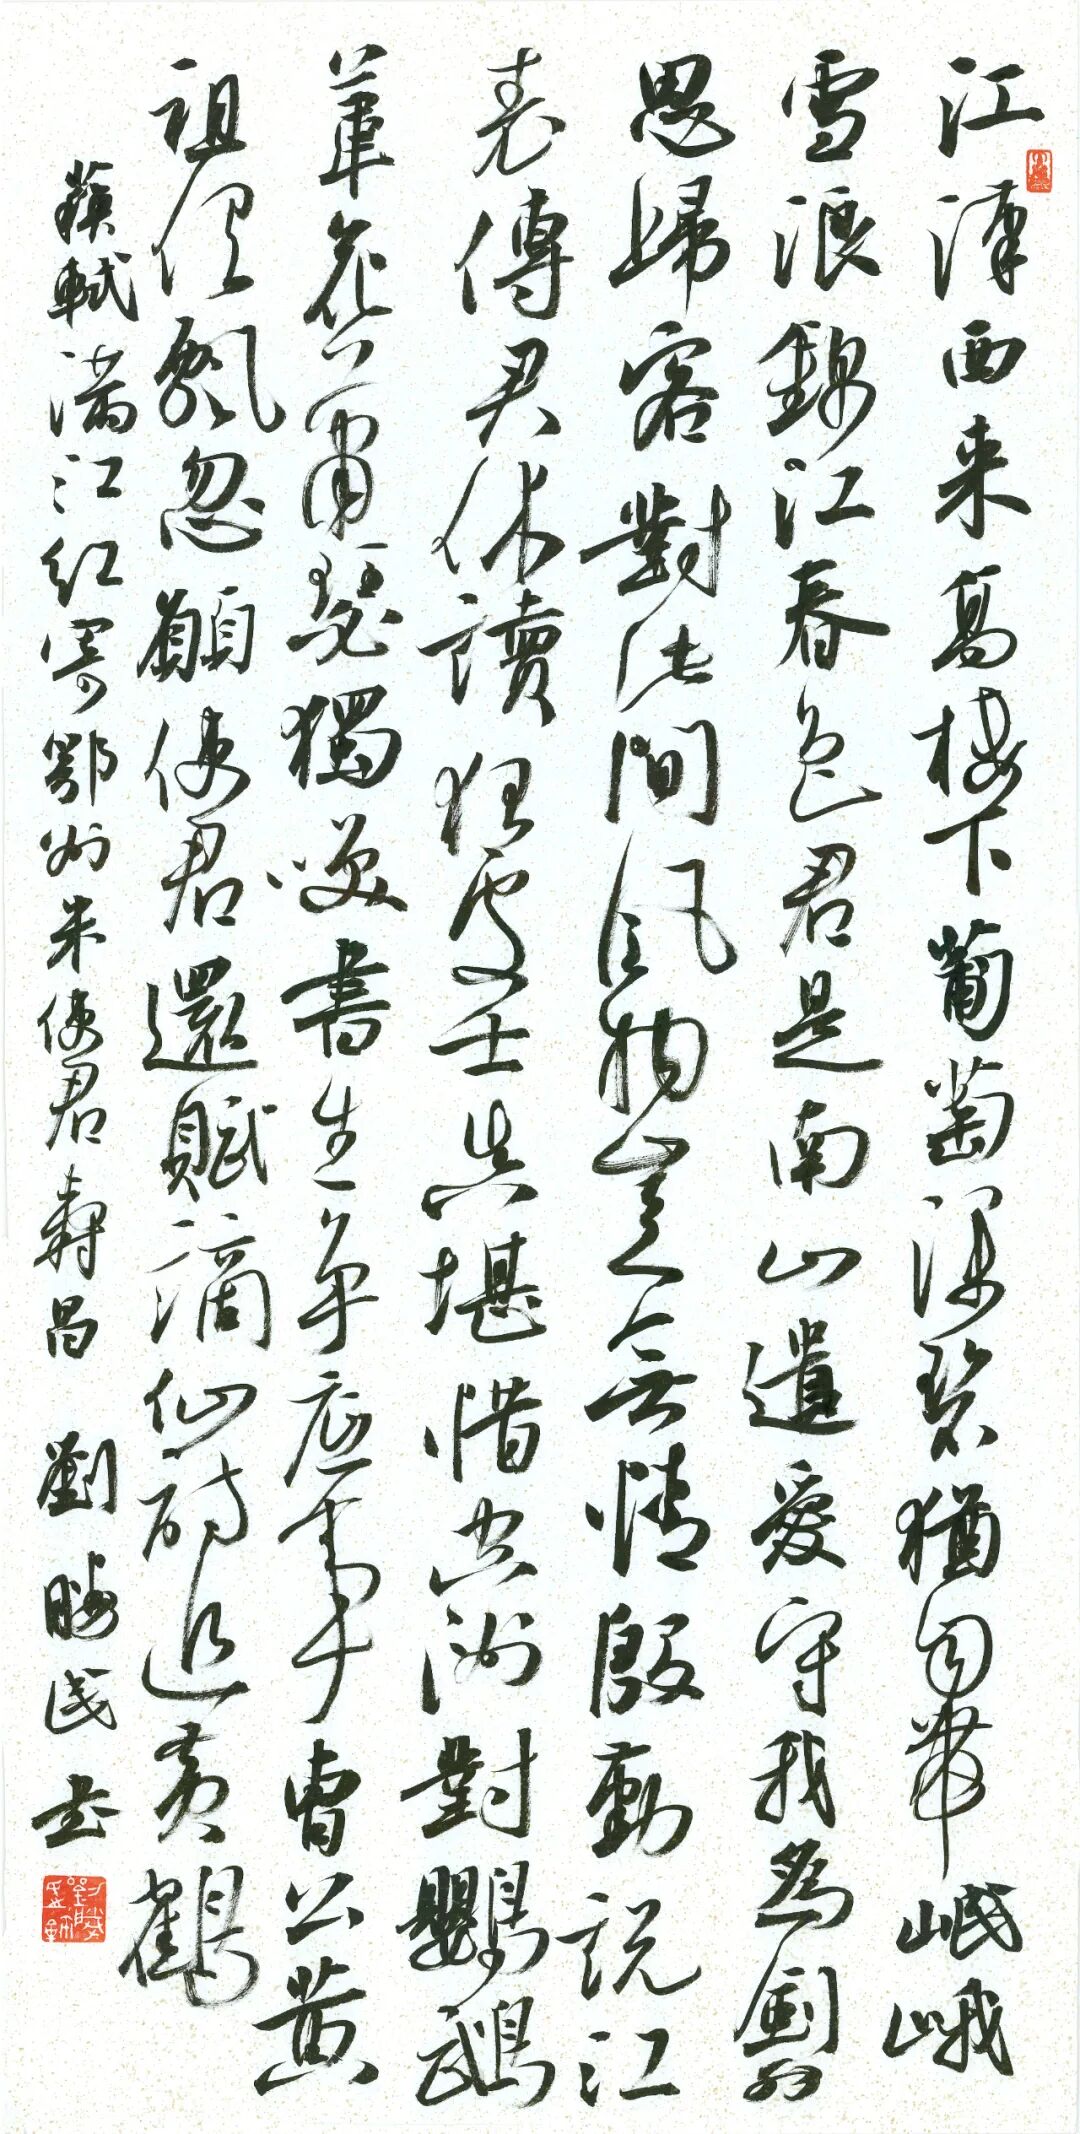 江漢西来高樓下葡萄深碧猶自帶岷峨
雪浪錦江春色君是南山遺愛守我為劍外
思歸客對此間風物豈無情殷勤說江
表傳君休讀狂處士真堪惜空洲對鸚鵡
葦花蕭瑟獨笑書生爭底事曹公黄
祖俱飄忽願使君還賦謫仙詩追黄鶴
蘇軾滿江红寄鄂州朱使君壽昌 劉勝民书